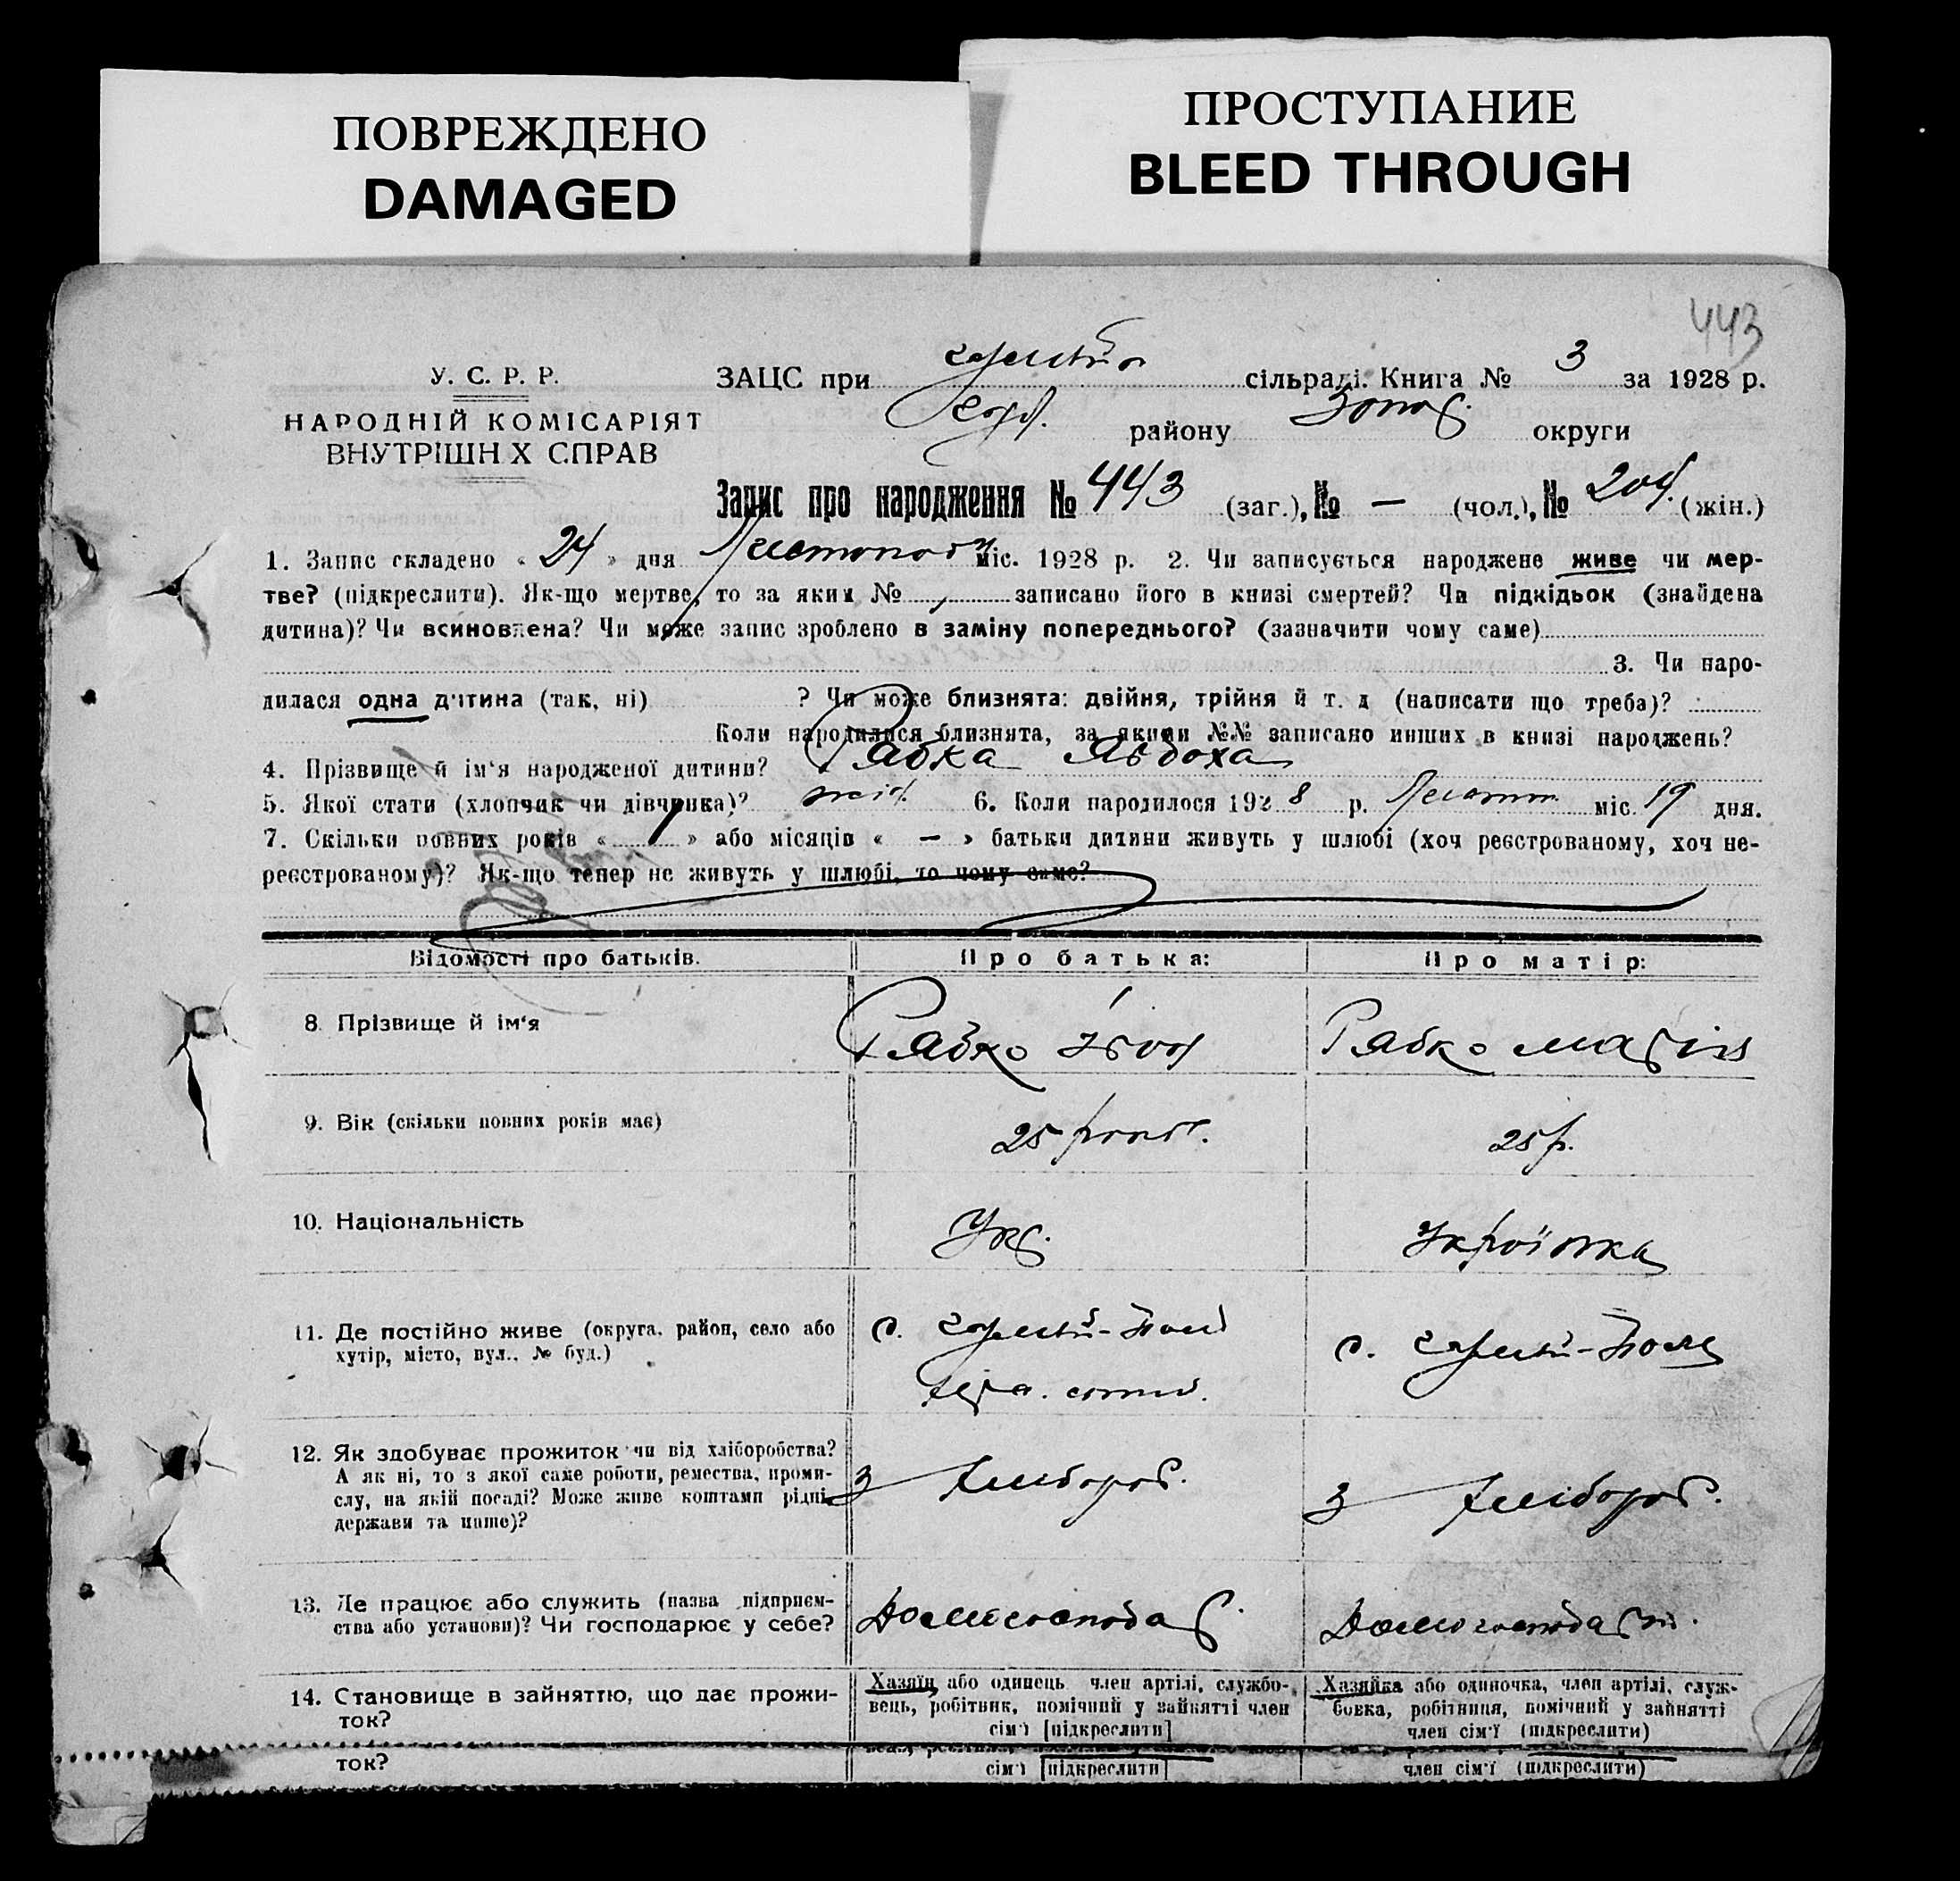 ПОВРЕЖДЕНО
DAMAGED
ПРОСТУПАНИЕ
BLEED THROUGH
443
У. С. Р. Р.
НАРОДНІЙ КОМІСАРІЯТ
ВНУТРІШН Х СПРАВ
ЗАЦС при сільраді. Книга № 3 за 1928 р.
району округи
Запис про народження № 443 (заг.), № — (чол.), № 204 (жін.)
1. Запис складено « 24 » дня Листопада міс. 1928 р. 2. Чи записується народжене живе чи мер-
тве? (підкреслити). Як-що мертве, то за яким № записано його в книзі смертей? Чи підкідьок (знайдена
дитина)? Чи всиновлена? Чи може запис зроблено в заміну попереднього? (зазначити чому саме)
3. Чи наро-
дилася одна дитина (так, ні) ? Чи може близнята: двійня, трійня й т. д (написати що треба)?
Коли народилися близнята, за якими №№ записано инших в книзі народжень?
4. Прізвище й ім'я народженої дитини? Рябка Явдоха
5. Якої стати (хлопчик чи дівчинка)? жін. 6. Коли народилося 1928 р. Листоп. міс. 19 дня.
7. Скільки повних років « » або місяців « — » батьки дитини живуть у шлюбі (хоч реєстрованому, хоч не-
реєстрованому)? Як-що тепер не живуть у шлюбі, то чому саме?
Відомості про батьків. Про батька: Про матір:
8. Прізвище й ім'я Рябко Іван Рябко Марія
9. Вік (скільки повних років має) 25 років. 25 р.
10. Національність Укр. Українка
11. Де постійно живе (округа, район, село або
хутір, місто, вул., № буд.)
с. Гуляй-Поле с. Гуляй-Поле
12. Як здобуває прожиток чи від хліборобства?
А як ні, то з якої саме роботи, ремества, проми-
слу, на якій посаді? Може живе коштами рідні,
держави та инше)?
з хлібороб. з хлібороб.
13. Де працює або служить (назва підприєм-
ства або установи)? Чи господарює у себе?
Домогосподар. Домогосподарк.
14. Становище в зайняттю, що дає прожи-
ток?
Хазяїн або одинець член артілі, службо-
вець, робітник, помічний у зайнятті член
сім'ї [підкреслити]
Хазяйка або одиночка, член артілі, служ-
бовка, робітниця, помічний у зайнятті
член сім'ї (підкреслити)
ток? сім'ї [підкреслити] член сім'ї (підкреслити)